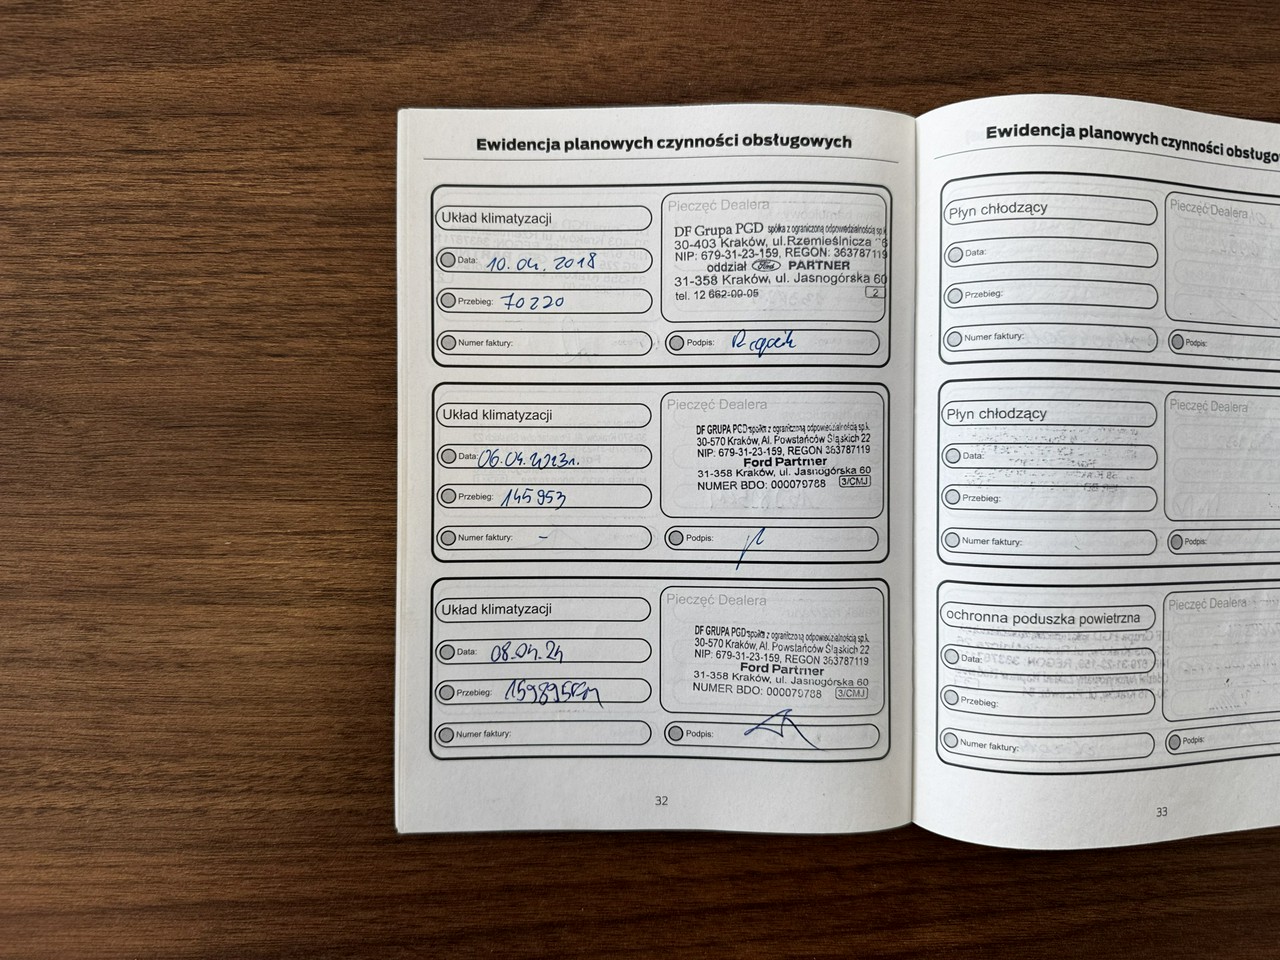 Ewidencja planowych czynności obsługowych
Układ klimatyzacji
Data: 10.04.2018
Przebieg: 70220
Numer faktury:
Pieczęć Dealera
DF Grupa PGD spółka z ograniczoną odpowiedzialnością sp.k
30-403 Kraków, ul.Rzemieślnicza
NIP: 679-31-23-159, REGON: 363787119
oddział Ford PARTNER
31-358 Kraków, ul. Jasnogórska 60
tel. 12 662-00-05
2
Podpis:
Układ klimatyzacji
Data: 06.04.2023r.
Przebieg: 145953
Numer faktury: -
Pieczęć Dealera
DF GRUPA PGD spółka z ograniczoną odpowiedzialnością sp.k.
30-570 Kraków, Al. Powstańców Śląskich 22
NIP: 679-31-23-159, REGON 363787119
Ford Partner
31-358 Kraków, ul. Jasnogórska 60
NUMER BDO: 000079788 3/CMJ
Podpis:
Układ klimatyzacji
Data: 08.04.24
Przebieg: 159895km
Numer faktury:
Pieczęć Dealera
DF GRUPA PGD spółka z ograniczoną odpowiedzialnością sp.k.
30-570 Kraków, Al. Powstańców Śląskich 22
NIP: 679-31-23-159, REGON 363787119
Ford Partner
31-358 Kraków, ul. Jasnogórska 60
NUMER BDO: 000079788 3/CMJ
Podpis:
32
Ewidencja planowych czynności obsługo
Płyn chłodzący
Data:
Przebieg:
Numer faktury:
Pieczęć Dealera
Podpis:
Płyn chłodzący
Data:
Przebieg:
Numer faktury:
Pieczęć Dealera
Podpis:
ochronna poduszka powietrzna
Data:
Przebieg:
Numer faktury:
Pieczęć Dealera
Podpis:
33